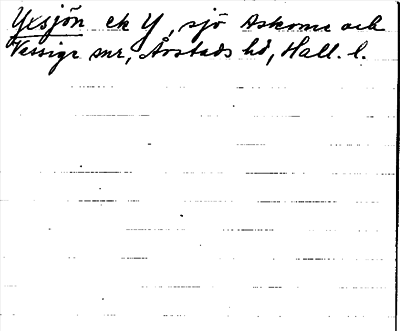 Yxsjön ek Y, sjö Askome och
Vessige snr, Årstads hd, Hall. l.